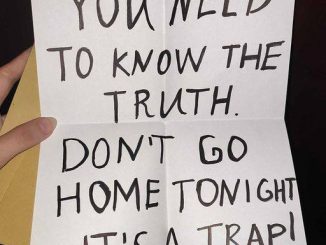 YOU NEED
TO KNOW THE
TRUTH.
DON'T GO
HOME TONIGHT
IT'S A TRAP!